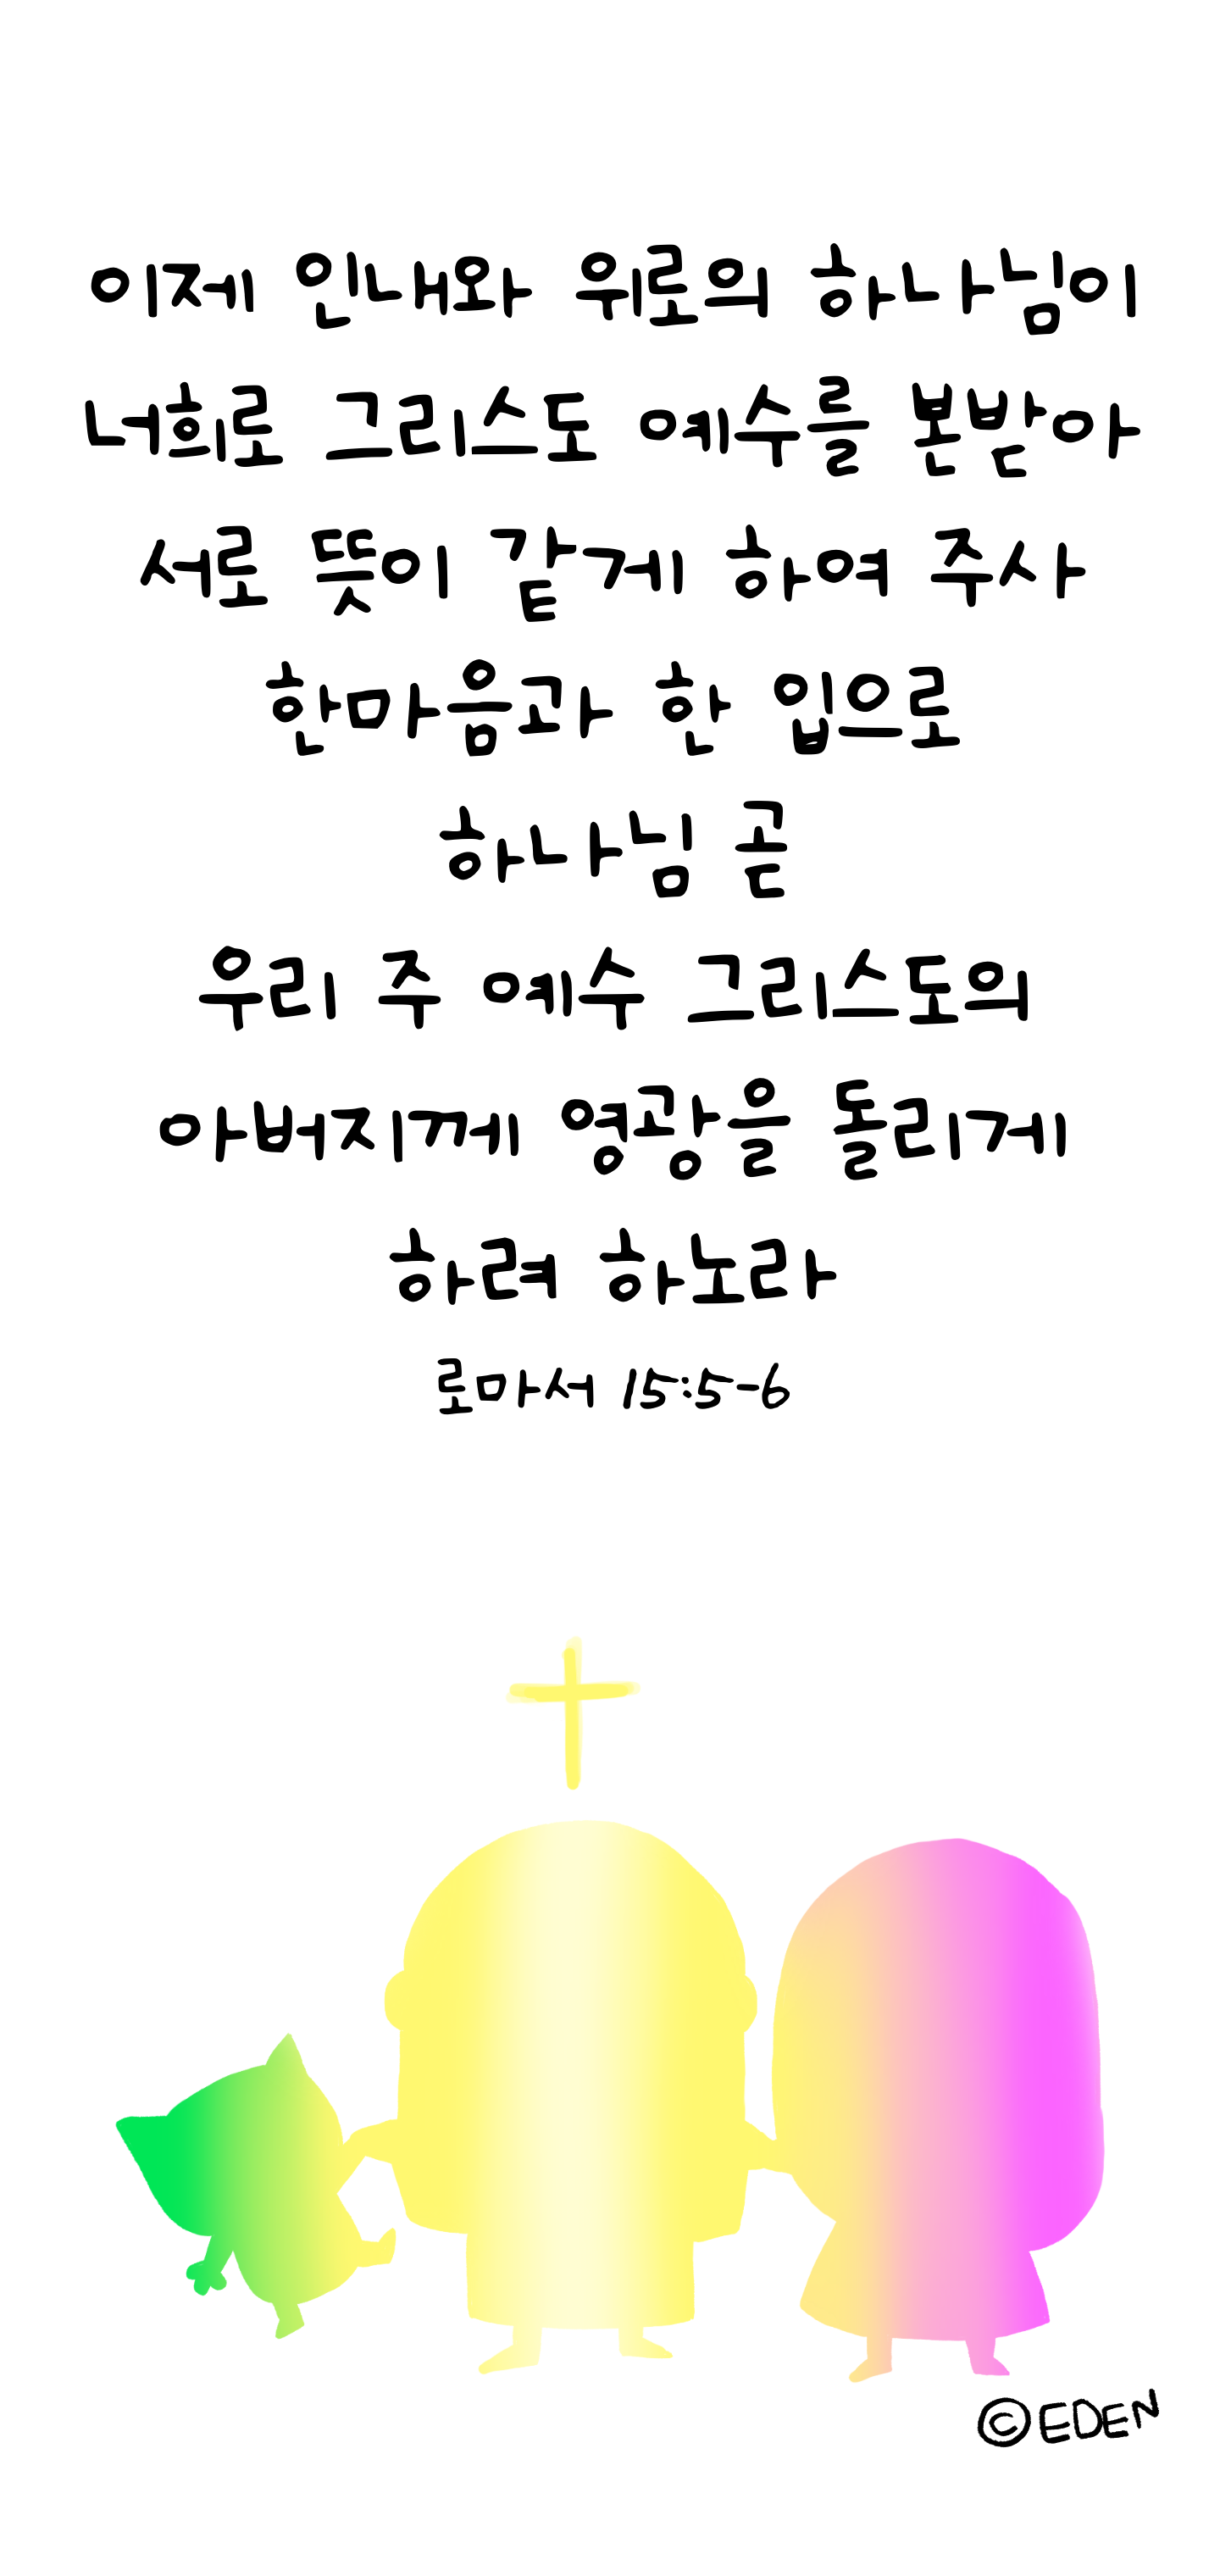 이제 인내와 위로의 하나님이
너희로 그리스도 예수를 본받아
서로 뜻이 같게 하여 주사
한마음과 한 입으로
하나님 곧
우리 주 예수 그리스도의
아버지께 영광을 돌리게
하려 하노라
로마서 15:5-6
©EDEN